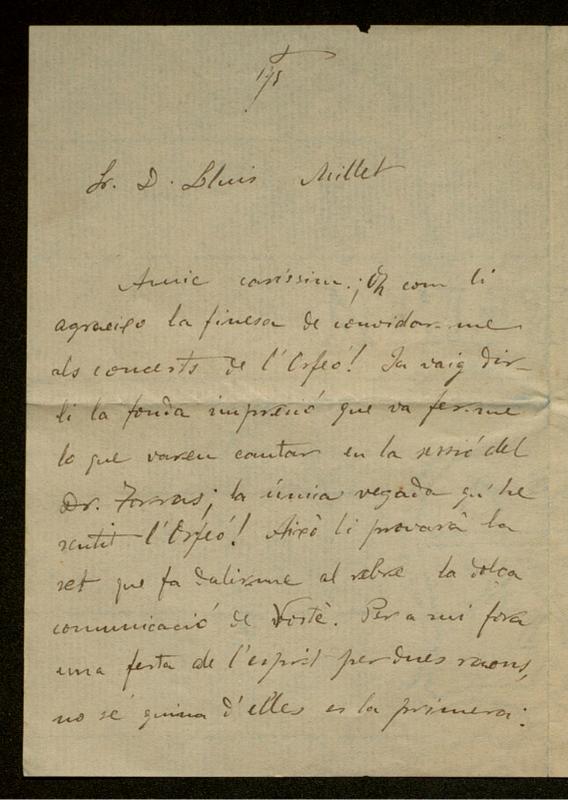 Sr. D. Lluis Millet
Amic caríssim: ¡Oh com li
agraeixo la finesa de convidar-me
als concerts de l'Orfeó! Ja vaig dir-
li la fonda impresió que va fer-me
lo que varen cantar en la sessió del
Dr. Torras; la única vegada qu'he
sentit l'Orfeó! Aixó li provarà la
set que fa dalirme al rebre la dolça
comunicació de Vostè. Per a mi fora
una festa de l'esprit per dues raons,
no sé quina d'elles es la primera: